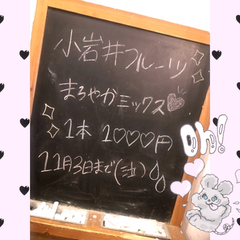 小岩井フルーツ
まろやかミックス♡
1本 1♡♡♡円
11月3日まで(注)
Oh!